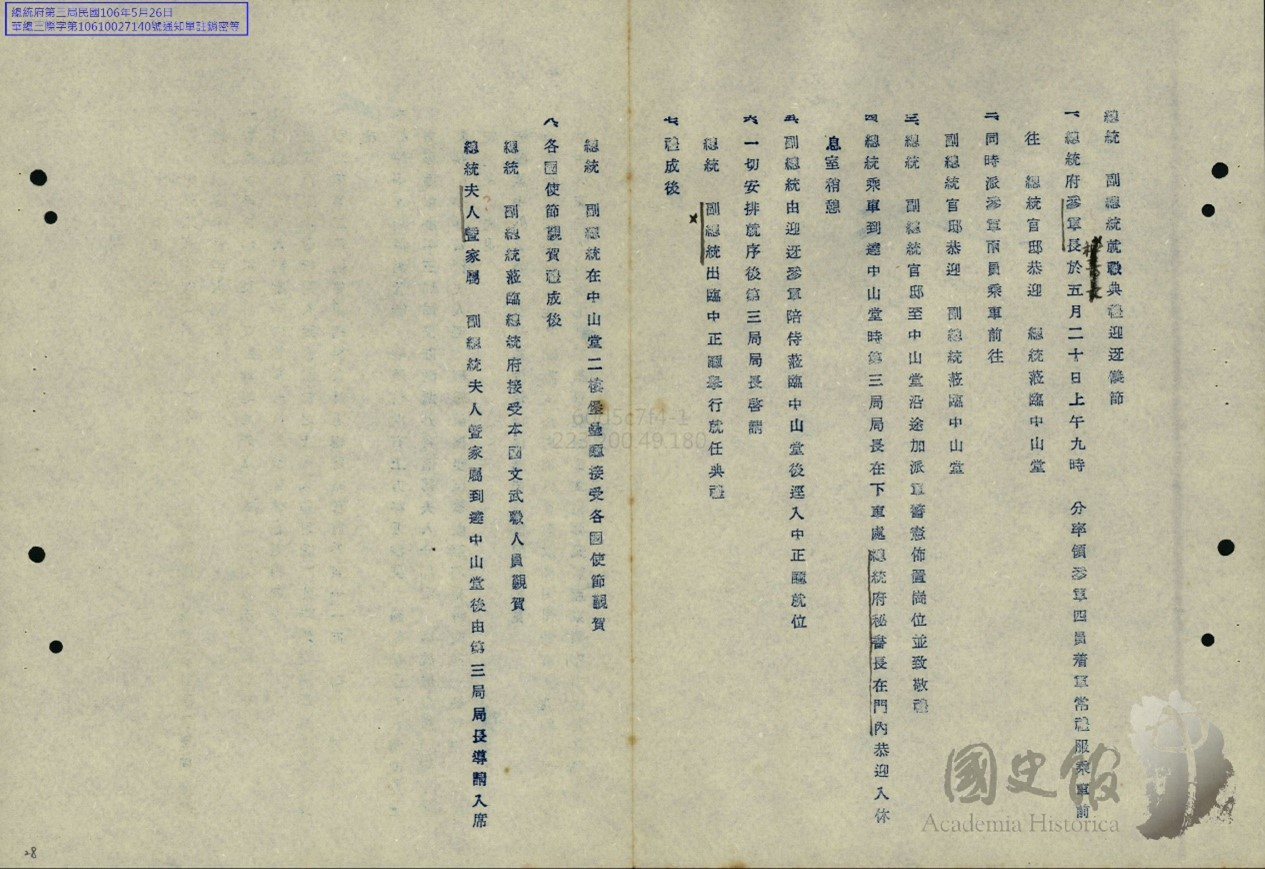 總統府第三局民國106年5月26日
華總三際字第10610027140號通知單註銷密等
總統　副總統就職典禮迎迓儀節
一、總統府參軍長於五月二十日上午九時　分率領參軍四員着軍常禮服乘車前
往　總統官邸恭迎　總統蒞臨中山堂
二、同時派參軍兩員乘車前往
副總統官邸恭迎　副總統蒞臨中山堂
三、總統　副總統官邸至中山堂沿途加派軍警憲佈置崗位並致敬禮
四、總統乘車到達中山堂時第三局局長在下車處總統府秘書長在門內恭迎入休
息室稍憩
五、副總統由迎迓參軍陪侍蒞臨中山堂後逕入中正廳就位
六、一切安排就序後第三局局長啓請
總統　副總統出臨中正廳舉行就任典禮
七、禮成後
總統　副總統在中山堂二樓堡壘廳接受各國使節覲賀
八、各國使節覲賀禮成後
總統　副總統蒞臨總統府接受本國文武職人員覲賀
總統夫人暨家屬　副總統夫人暨家屬到達中山堂後由第三局局長導請入席
28
國史館
Academia Historica
223.200.49.180